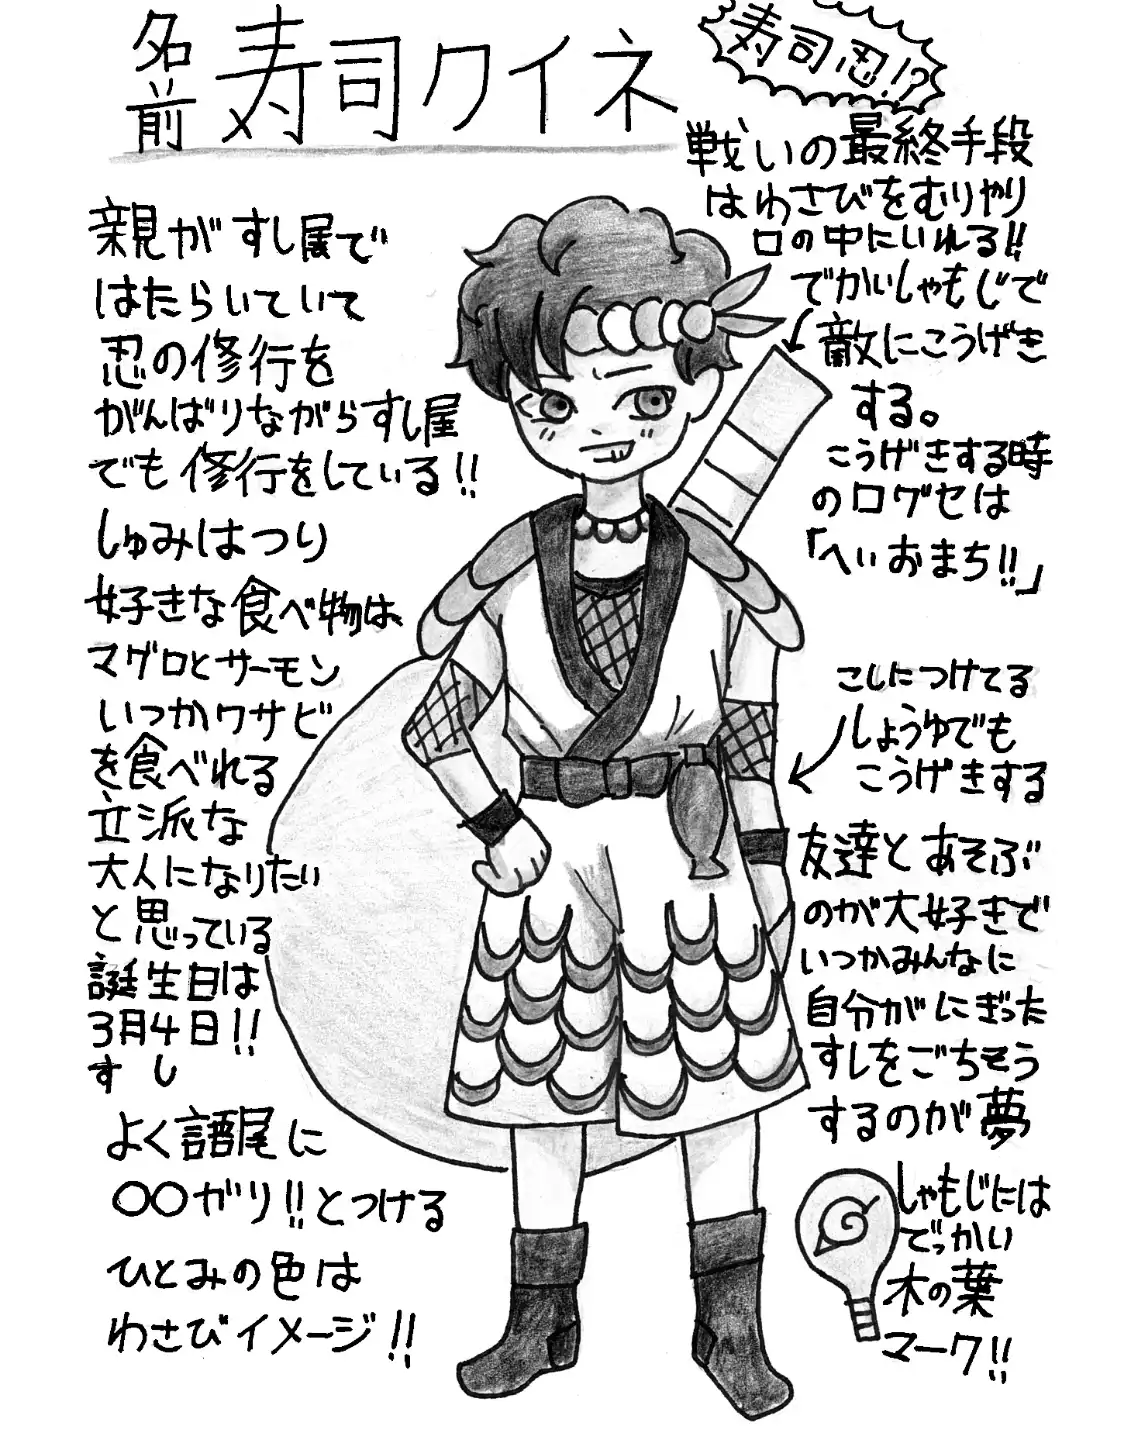 名前 寿司クイネ
寿司忍!?
親がすし屋で
はたらいていて
忍の修行を
がんばりながらすし屋
でも修行をしている!!
しゅみはつり
好きな食べ物は
マグロとサーモン
いつかワサビ
を食べれる
立派な
大人になりたい
と思っている
誕生日は
3月4日!!
す し
よく語尾に
〇〇ガリ!!とつける
ひとみの色は
わさびイメージ!!
戦いの最終手段
はわさびをむりやり
口の中にいれる!!
でかいしゃもじで
敵にこうげき
する。
こうげきする時
の口グセは
「へいおまち!!」
こしにつけてる
しょうゆでも
こうげきする
友達とあそぶ
のが大好きで
いつかみんなに
自分がにぎった
すしをごちそう
するのが夢
しゃもじには
でっかい
木の葉
マーク!!